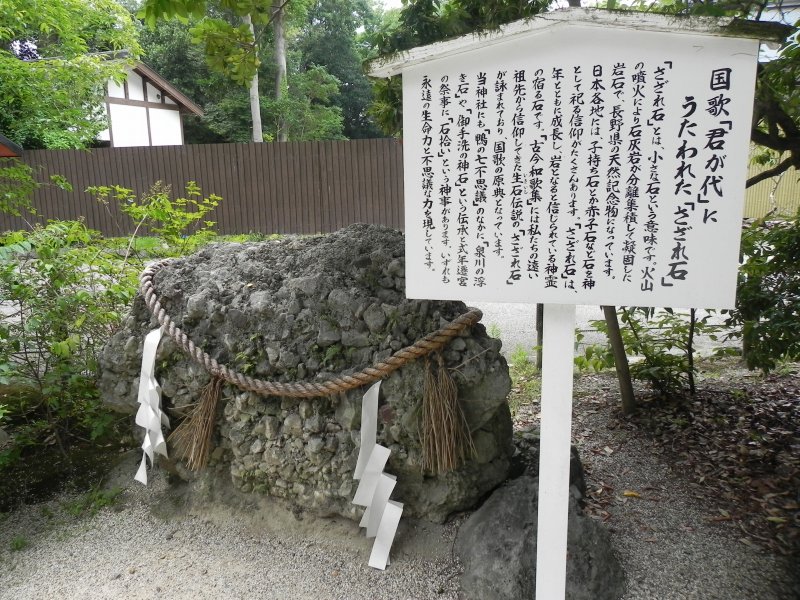 国歌「君が代」に
うたわれた「さざれ石」
「さざれ石」とは、小さな石という意味です。火山
の噴火により石灰岩が分離集積して凝固した
岩石で、長野県の天然記念物になっています。
日本各地には、子持ち石とか赤子石など石を神
として祀る信仰がたくさんあります。「さざれ石」は、
年とともに成長し、岩となると信じられている神霊
の宿る石です。「古今和歌集」には私たちの遠い
祖先から信仰してきた生石伝説の「さざれ石」
が詠まれており、国歌の原典となっています。
当神社にも「鴨の七不思議」のなかに、「泉川の浮
き石」や、「御手洗の神石」という伝承と式年遷宮
の祭事に、「石拾い」という神事があります。いずれも
永遠の生命力と不思議な力を現しています。